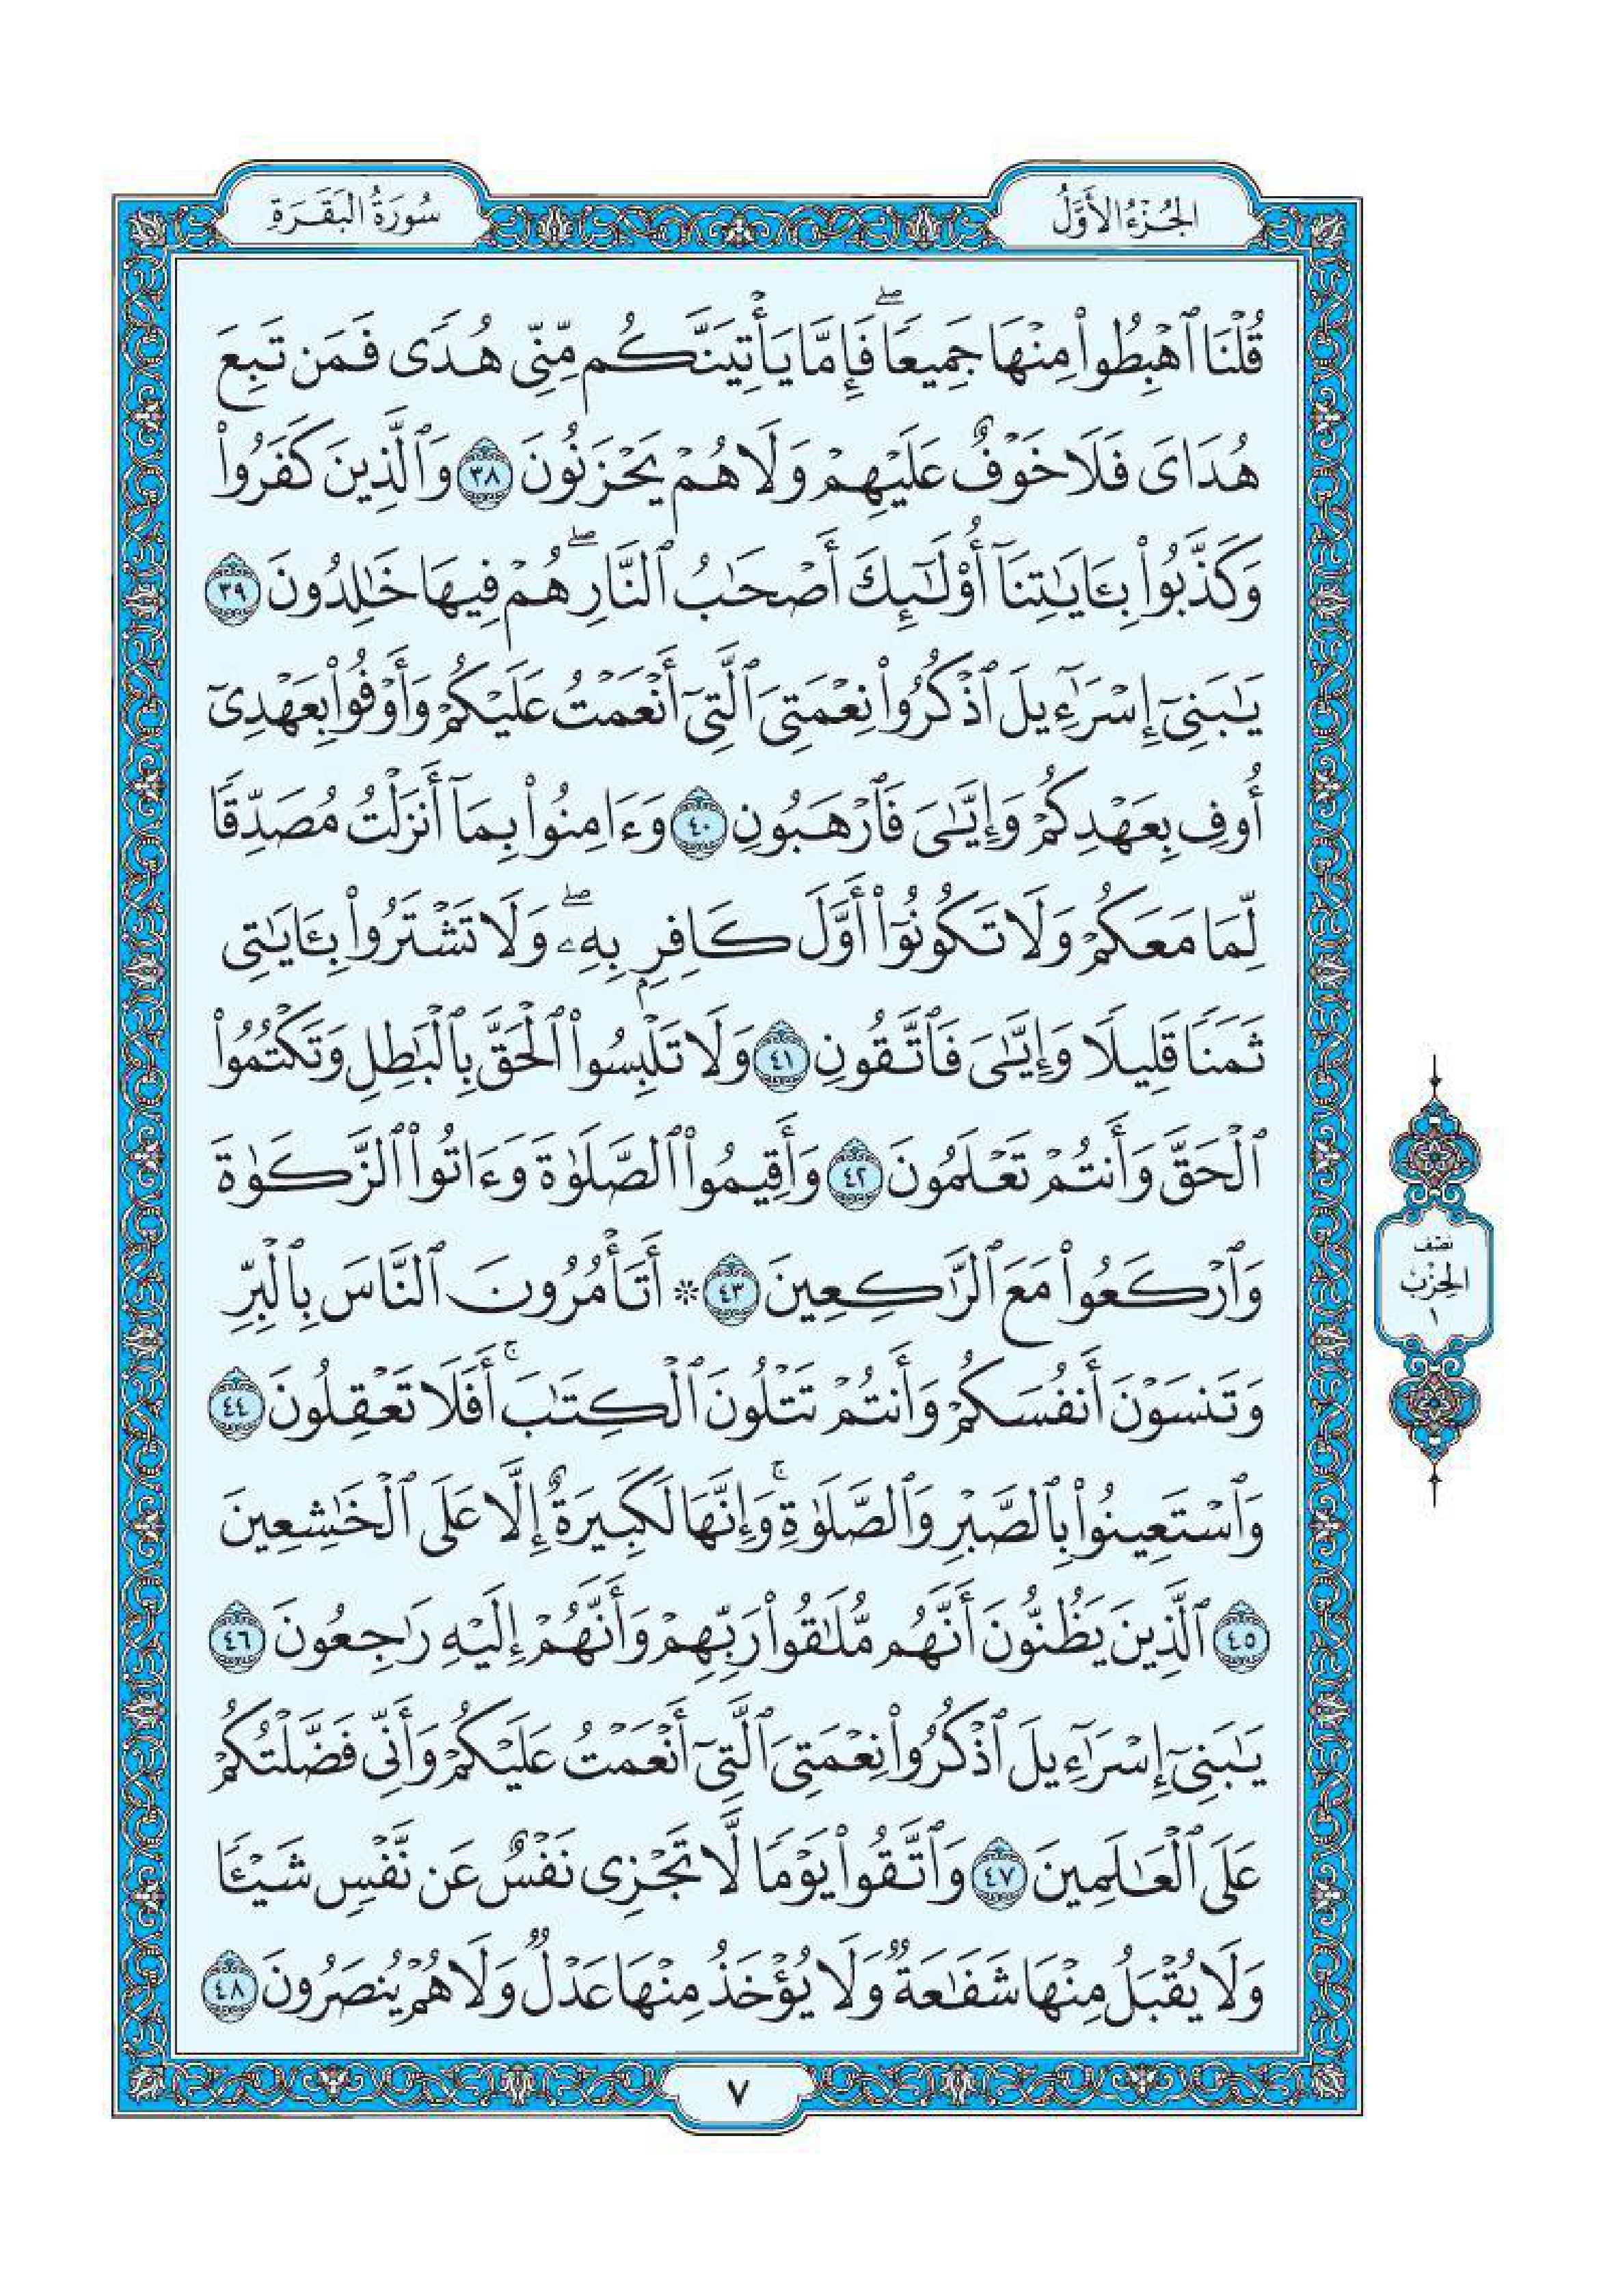 الجُزْءُ الأَوَّلُ
سُورَةُ البَقَرَةِ
قُلْنَا ٱهْبِطُوا۟ مِنْهَا جَمِيعًۭا ۖ فَإِمَّا يَأْتِيَنَّكُم مِّنِّى هُدًۭى فَمَن تَبِعَ
هُدَاىَ فَلَا خَوْفٌ عَلَيْهِمْ وَلَا هُمْ يَحْزَنُونَ ٣٨ وَٱلَّذِينَ كَفَرُوا۟
وَكَذَّبُوا۟ بِـَٔايَـٰتِنَآ أُو۟لَـٰٓئِكَ أَصْحَـٰبُ ٱلنَّارِ ۖ هُمْ فِيهَا خَـٰلِدُونَ ٣٩
يَـٰبَنِىٓ إِسْرَٰٓءِيلَ ٱذْكُرُوا۟ نِعْمَتِىَ ٱلَّتِىٓ أَنْعَمْتُ عَلَيْكُمْ وَأَوْفُوا۟ بِعَهْدِىٓ
أُوفِ بِعَهْدِكُمْ وَإِيَّـٰىَ فَٱرْهَبُونِ ٤٠ وَءَامِنُوا۟ بِمَآ أَنزَلْتُ مُصَدِّقًۭا
لِّمَا مَعَكُمْ وَلَا تَكُونُوٓا۟ أَوَّلَ كَافِرٍۭ بِهِۦ ۖ وَلَا تَشْتَرُوا۟ بِـَٔايَـٰتِى
ثَمَنًۭا قَلِيلًۭا وَإِيَّـٰىَ فَٱتَّقُونِ ٤١ وَلَا تَلْبِسُوا۟ ٱلْحَقَّ بِٱلْبَـٰطِلِ وَتَكْتُمُوا۟
ٱلْحَقَّ وَأَنتُمْ تَعْلَمُونَ ٤٢ وَأَقِيمُوا۟ ٱلصَّلَوٰةَ وَءَاتُوا۟ ٱلزَّكَوٰةَ
وَٱرْكَعُوا۟ مَعَ ٱلرَّٰكِعِينَ ٤٣ ۞ أَتَأْمُرُونَ ٱلنَّاسَ بِٱلْبِرِّ
وَتَنسَوْنَ أَنفُسَكُمْ وَأَنتُمْ تَتْلُونَ ٱلْكِتَـٰبَ ۚ أَفَلَا تَعْقِلُونَ ٤٤
وَٱسْتَعِينُوا۟ بِٱلصَّبْرِ وَٱلصَّلَوٰةِ ۚ وَإِنَّهَا لَكَبِيرَةٌ إِلَّا عَلَى ٱلْخَـٰشِعِينَ
٤٥ ٱلَّذِينَ يَظُنُّونَ أَنَّهُم مُّلَـٰقُوا۟ رَبِّهِمْ وَأَنَّهُمْ إِلَيْهِ رَٰجِعُونَ ٤٦
يَـٰبَنِىٓ إِسْرَٰٓءِيلَ ٱذْكُرُوا۟ نِعْمَتِىَ ٱلَّتِىٓ أَنْعَمْتُ عَلَيْكُمْ وَأَنِّى فَضَّلْتُكُمْ
عَلَى ٱلْعَـٰلَمِينَ ٤٧ وَٱتَّقُوا۟ يَوْمًۭا لَّا تَجْزِى نَفْسٌ عَن نَّفْسٍۢ شَيْـًۭٔا
وَلَا يُقْبَلُ مِنْهَا شَفَـٰعَةٌۭ وَلَا يُؤْخَذُ مِنْهَا عَدْلٌۭ وَلَا هُمْ يُنصَرُونَ ٤٨
نصف
الحِزْب
١
٧